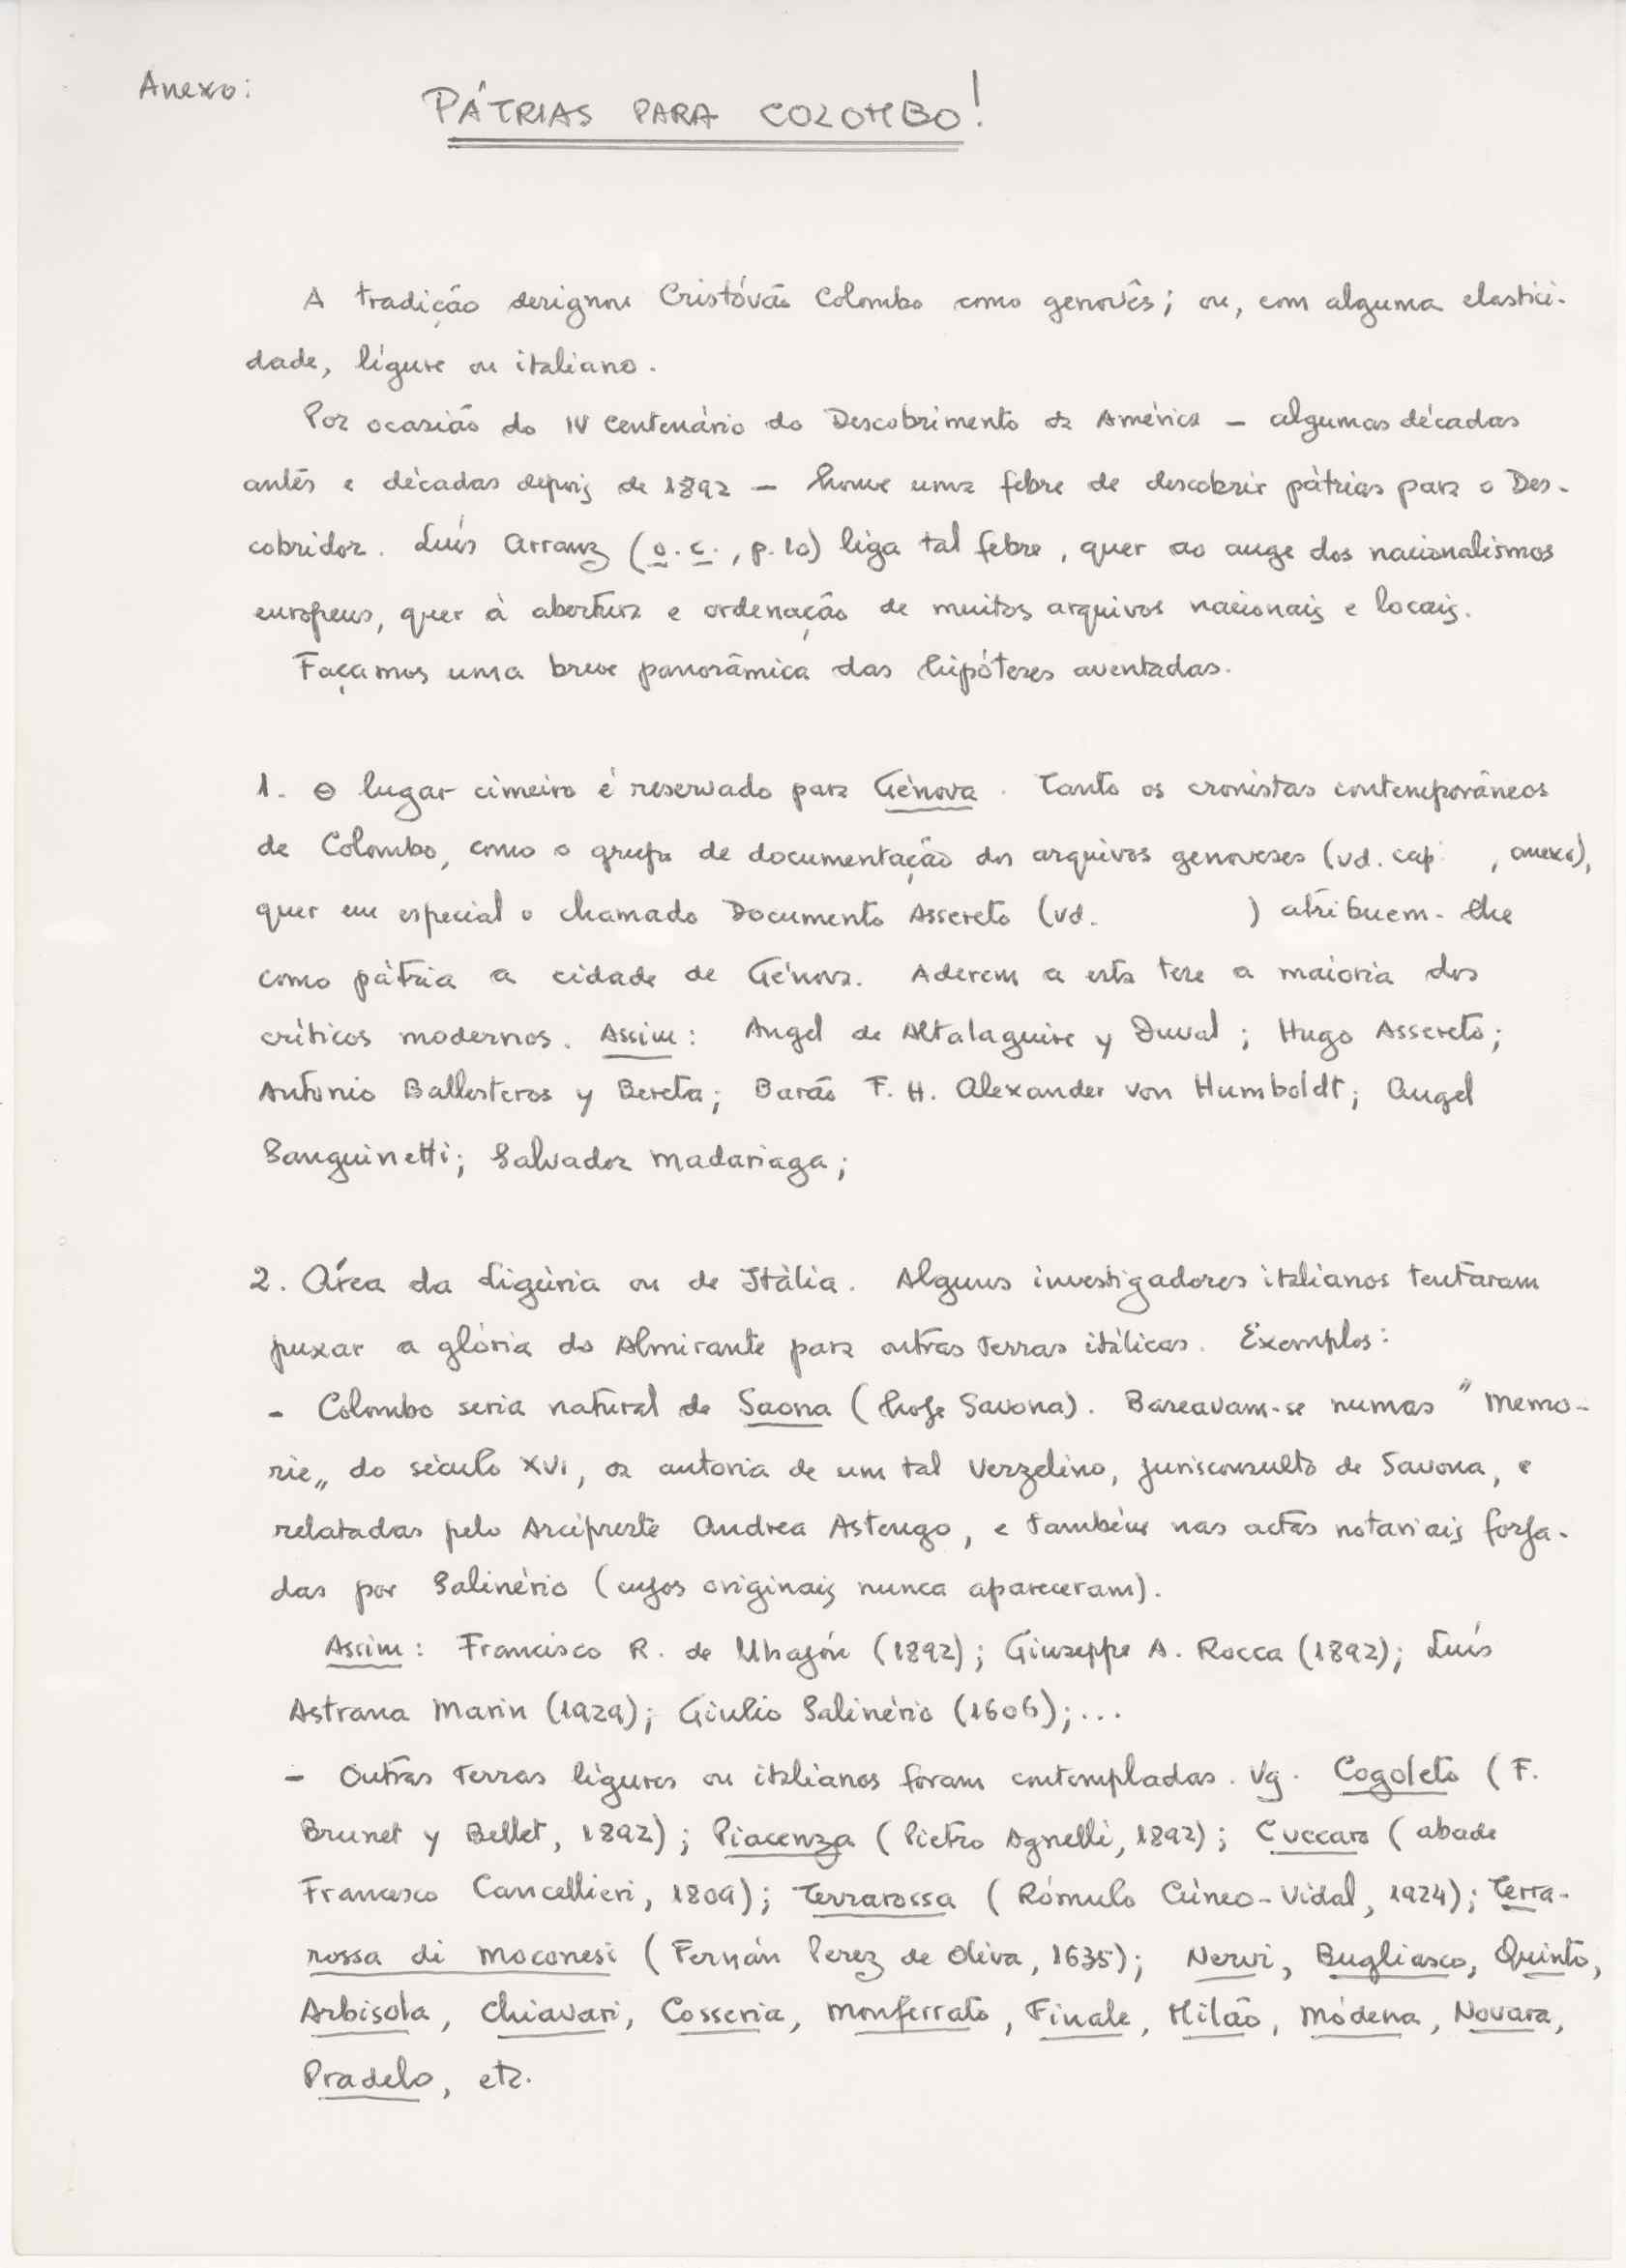 Anexo:
PÁTRIAS PARA COLOMBO!
A tradição designou Cristóvão Colombo como genovês; ou, com alguma elastici-
dade, lígure ou italiano.
Por ocasião do IV Centenário do Descobrimento da América – algumas décadas
antes e décadas depois de 1892 – houve uma febre de descobrir pátrias para o Des-
cobridor. Luís Arranz (o. c., p. 10) liga tal febre, quer ao auge dos nacionalismos
europeus, quer à abertura e ordenação de muitos arquivos nacionais e locais.
Façamos uma breve panorâmica das hipóteses aventadas.
1. O lugar cimeiro é reservado para Génova. Tanto os cronistas contemporâneos
de Colombo, como o grupo de documentação dos arquivos genoveses (vd. cap. , anexo),
quer em especial o chamado Documento Assereto (vd. ) atribuem-lhe
como pátria a cidade de Génova. Aderem a esta tese a maioria dos
críticos modernos. Assim: Angel de Altalaguire y Duval; Hugo Assereto;
Antonio Ballesteros y Bereta; Barão F. H. Alexander von Humboldt; Angel
Sanguinetti; Salvador Madariaga;
2. Área da Ligúria ou de Itália. Alguns investigadores italianos tentaram
puxar a glória do Almirante para outras terras itálicas. Exemplos:
– Colombo seria natural de Saona (hoje Savona). Baseavam-se numas "Memo-
rie" do século XVI, da autoria de um tal Verzelino, jurisconsulto de Savona, e
relatadas pelo Arcipreste Andrea Astengo, e também nas actas notariais forja-
das por Salinério (cujos originais nunca apareceram).
Assim: Francisco R. de Uhagón (1892); Giuseppe A. Rocca (1892); Luís
Astrana Marin (1929); Giulio Salinério (1606);...
– Outras terras lígures ou italianas foram contempladas. Vg. Cogoleto (F.
Brunet y Bellet, 1892); Piacenza (Pietro Agnelli, 1892); Cuccaro (abade
Francesco Cancellieri, 1809); Terrarossa (Rómulo Cúneo-Vidal, 1924); Terra-
rossa di Moconesi (Fernán Perez de Oliva, 1635); Nervi, Bugliasco, Quinto,
Arbisola, Chiavari, Cosseria, Monferrato, Finale, Milão, Módena, Novara,
Pradelo, etc.